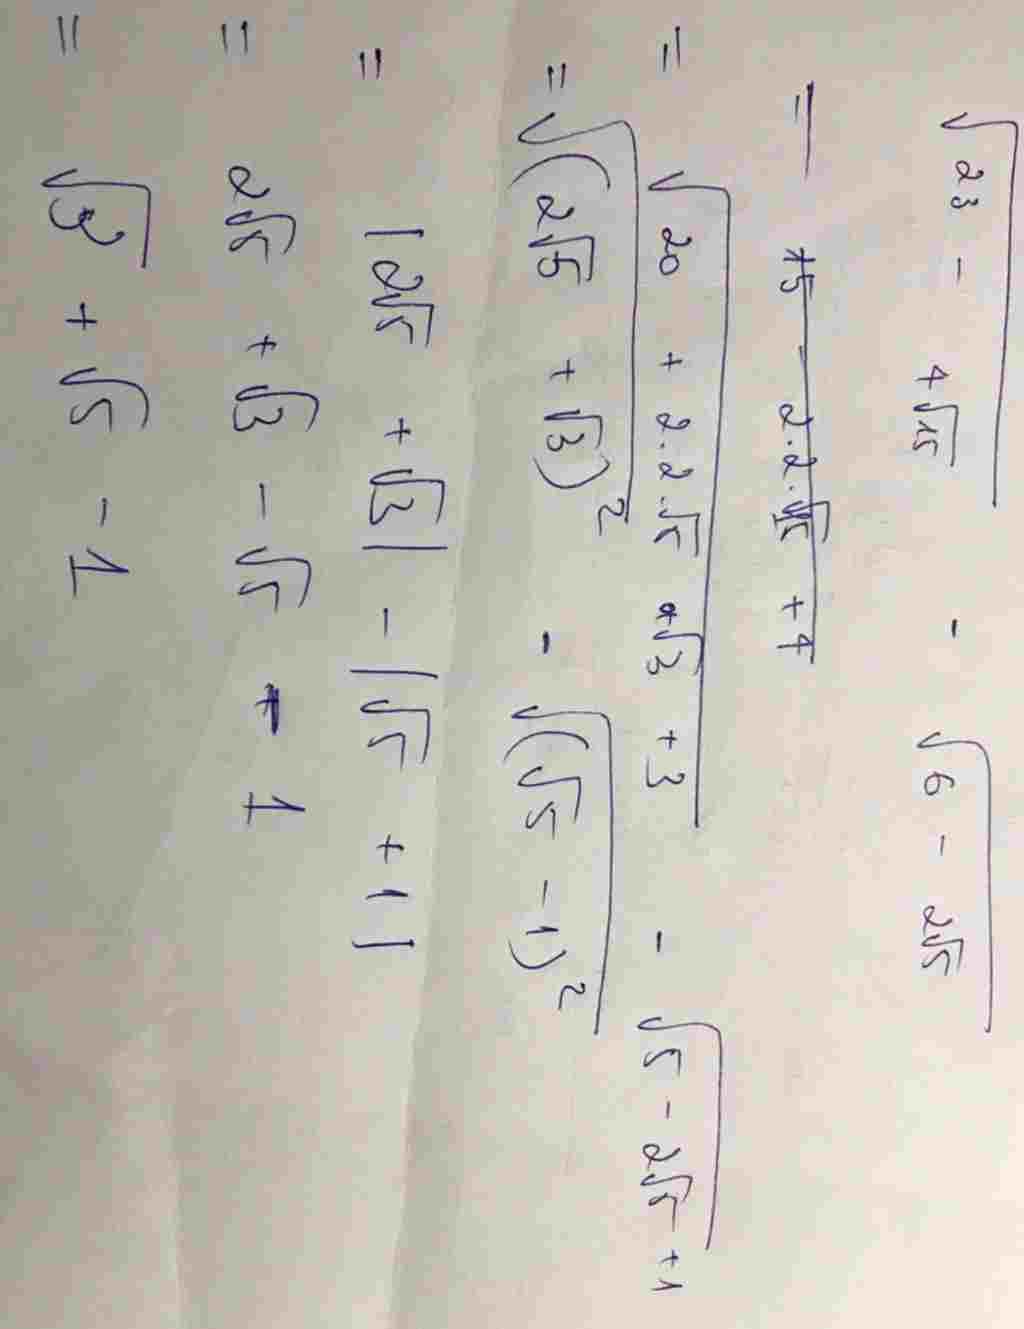 √(23 - 4√15) - √(6 - 2√5)
= 15 - 2.2.√15 + 4
= √(20 + 2.2.√5 . √3 + 3) - √(5 - 2√5 + 1)
= √((2√5 + √3)²) - √((√5 - 1)²)
= |2√5 + √3| - |√5 + 1|
= 2√5 + √3 - √5 - 1
= √3 + √5 - 1